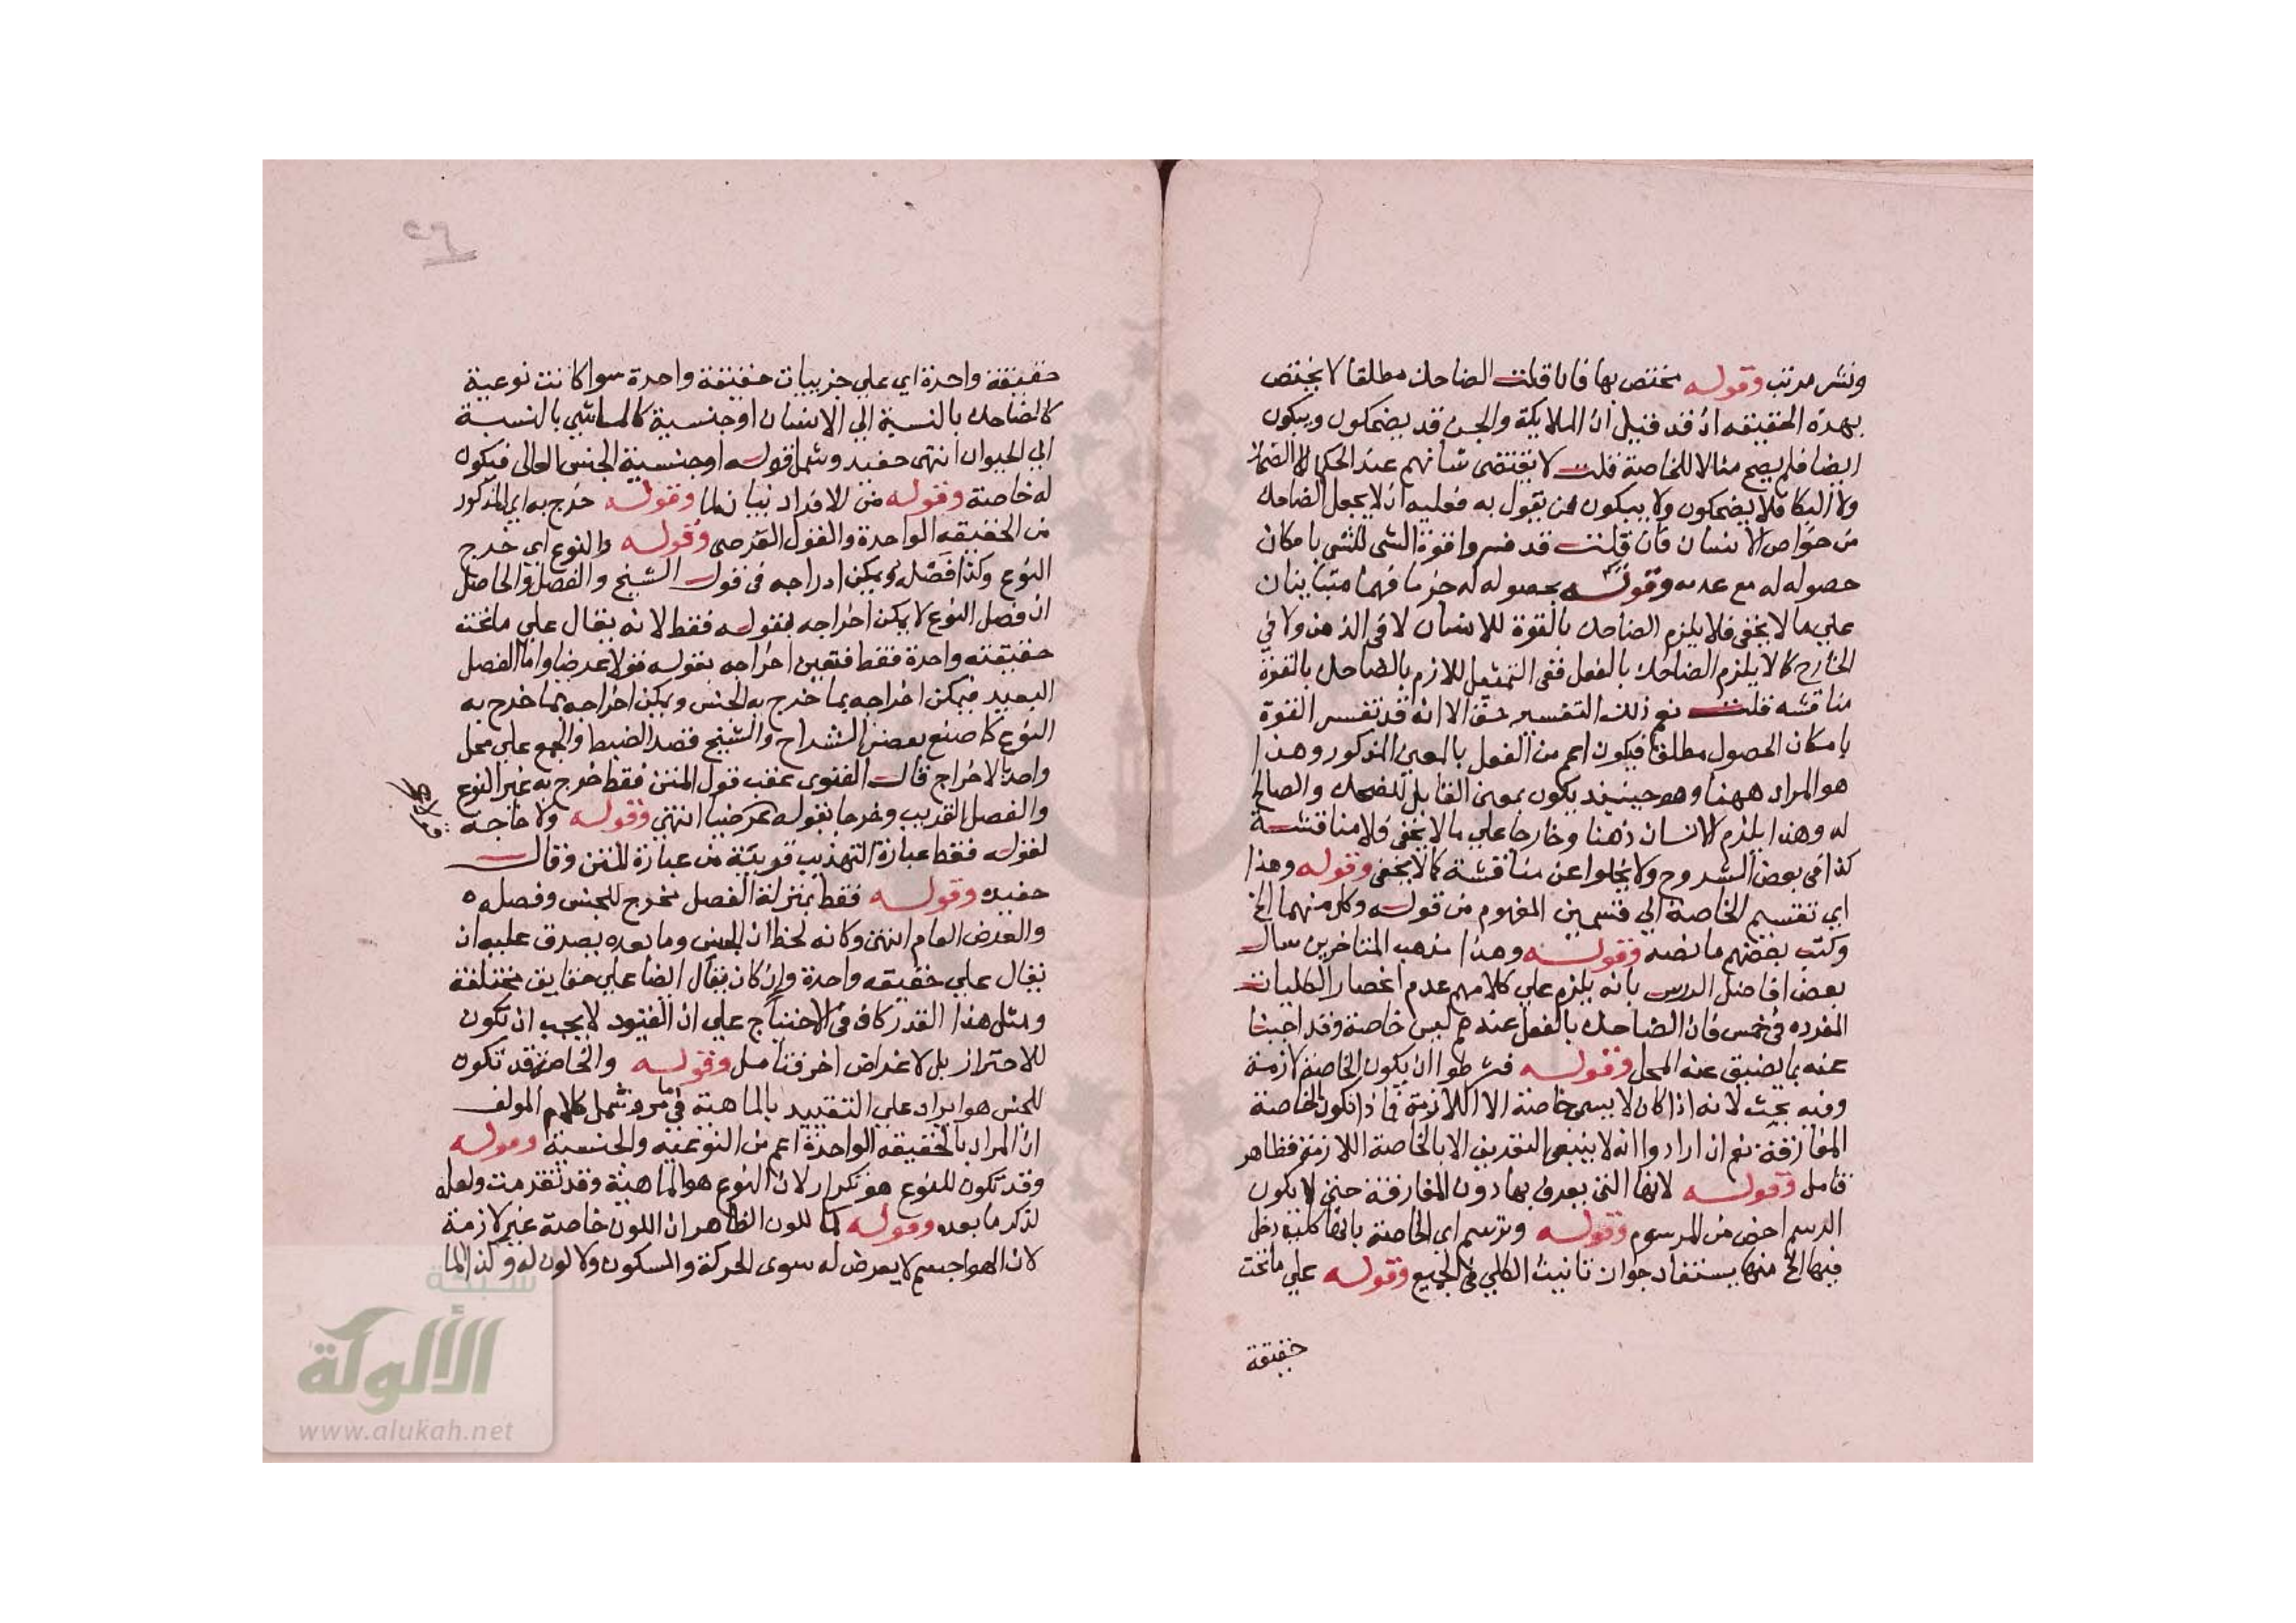 ونشر مرتب وقوله مختص بها فان قلت الضاحك مطلقا لا يختص
بهذه الحقيقه اذ قد قيل ان الملايكة والجن قد يضحكون ويبكون
ايضا فلم يصح مثالا للخاصة قلت لا يقتضى شانهم عند الحكما لا الضحك
ولا البكا فلا يضحكون ولا يبكون فمن يقول به فعليه ان لا يجعل الضاحك
من خواص الانسان فان قلت قد فسروا قوة الشى للشى بامكان
حصوله له مع عدمه وقوله بحصوله له جزما فهما متباينان
علي ما لا يخفى فلا يلزم الضاحك بالقوة للانسان لا فى الذهن ولا في
الخارج كالا يلزم الضاحك بالفعل ففى التمثيل للازم بالضاحك بالقوة
مناقشه قلت نعم ذلك التفسير حق الا انه قد تفسر القوة
بامكان الحصول مطلقا فيكون اعم من الفعل بالمعنى المذكور وهذا
هو المراد ههنا وهو حينيذ يكون بمعنى القابل للضحك والصالح
له وهذا يلزم الانسان ذهنا وخارجا علي ما لا يخفى فلا مناقشة
كذا فى بعض الشروح ولا يخلوا عن مناقشة كما لا يخفى وقوله وهذا
اي تقسيم الخاصة الي قسمين المفهوم من قوله وكل منهما الخ
وكتب بعضهم ما نصه وقوله وهذا مذهب المتاخرين سال
بعض افاضل الدرس بانه يلزم علي كلامهم عدم انحصار الكليات
المفرده فى خمس فان الضاحك بالفعل عندهم ليس خاصة وقد اجبنا
عنه بما يضيق عنه المحل وقوله فشرطوا ان يكون الخاصة لازمة
وفيه بحث لانه اذا كان لا يسمى خاصة الا اللازمة فماذا تكون الخاصة
المفارقة نعم ان ارادوا انه لا ينبغى التعريف الا بالخاصة اللازمة فظاهر
تامل وقوله لانها التى يعرف بها دون المفارقة حتى لا يكون
الرسم اخص من المرسوم وقوله وترسم اي الخاصة بانها كلية دخل
فيها الخ منها يستفاد جواز تانيث الكلي فى الجميع وقوله علي ما تحت
حقيقة
حقيقة واحدة اي علي جزييات حقيقة واحدة سوا كانت نوعية
كالضاحك بالنسبة الي الانسان او جنسية كالماشي بالنسبة
الي الحيوان انتهى حفيد وشمل قوله او جنسية الجنس العالى فيكون
له خاصة وقوله من الافراد بيان لما وقوله خرج به اي المذكور
من الحقيقه الواحدة والقول العرضى وقوله والنوع اي خرج
النوع وكذا فصله ويمكن ادراجه فى قول الشيخ والفصل والحاصل
ان فصل النوع لا يمكن اخراجه بقوله فقط لانه يقال علي ما تحت
حقيقته واحدة فقط فتعين اخراجه بقوله قولا عرضيا واما الفصل
البعيد فيمكن اخراجه بما خرج به الجنس ويمكن اخراجه بما خرج به
النوع كما صنع بعض الشراح والشيخ قصد الضبط والجمع على محل
واحد بالاخراج قال الفنوى عقب قول المتن فقط خرج به غير النوع
والفصل القريب وخرجا بقوله عرضيا انتهى وقوله ولا حاجة
لقوله فقط عبارة التهذيب قريبة من عبارة المتن وقال
حفيده وقوله فقط بمنزلة الفصل مخرج للجنس وفصله
والعرض العام انتهى وكانه لحظ ان الجنس وما بعده يصدق عليه ان
يقال علي حقيقه واحدة وان كان يقال ايضا علي حقايق مختلفة
ومثل هذا القدر كاف فى الاحتياج علي ان القيود لا يجب ان تكون
للاحتراز بل لاغراض اخر فتامل وقوله والخاصة قد تكون
للجنس هو ايراد علي التقييد بالماهية فى ما مر وشمل كلام المولف
ان المراد بالحقيقه الواحدة اعم من النوعيه والجنسية وقوله
وقد تكون للنوع هو تكرار لان النوع هو الماهية وقد تقدمت ولعله
لذكر ما بعده وقوله كما للون الظاهر ان اللون خاصة غير لازمة
لان الهوا جسم لا يعرض له سوى الحركة والسكون ولا لون له وكذا الما
شبكة
الألوكة
www.alukah.net